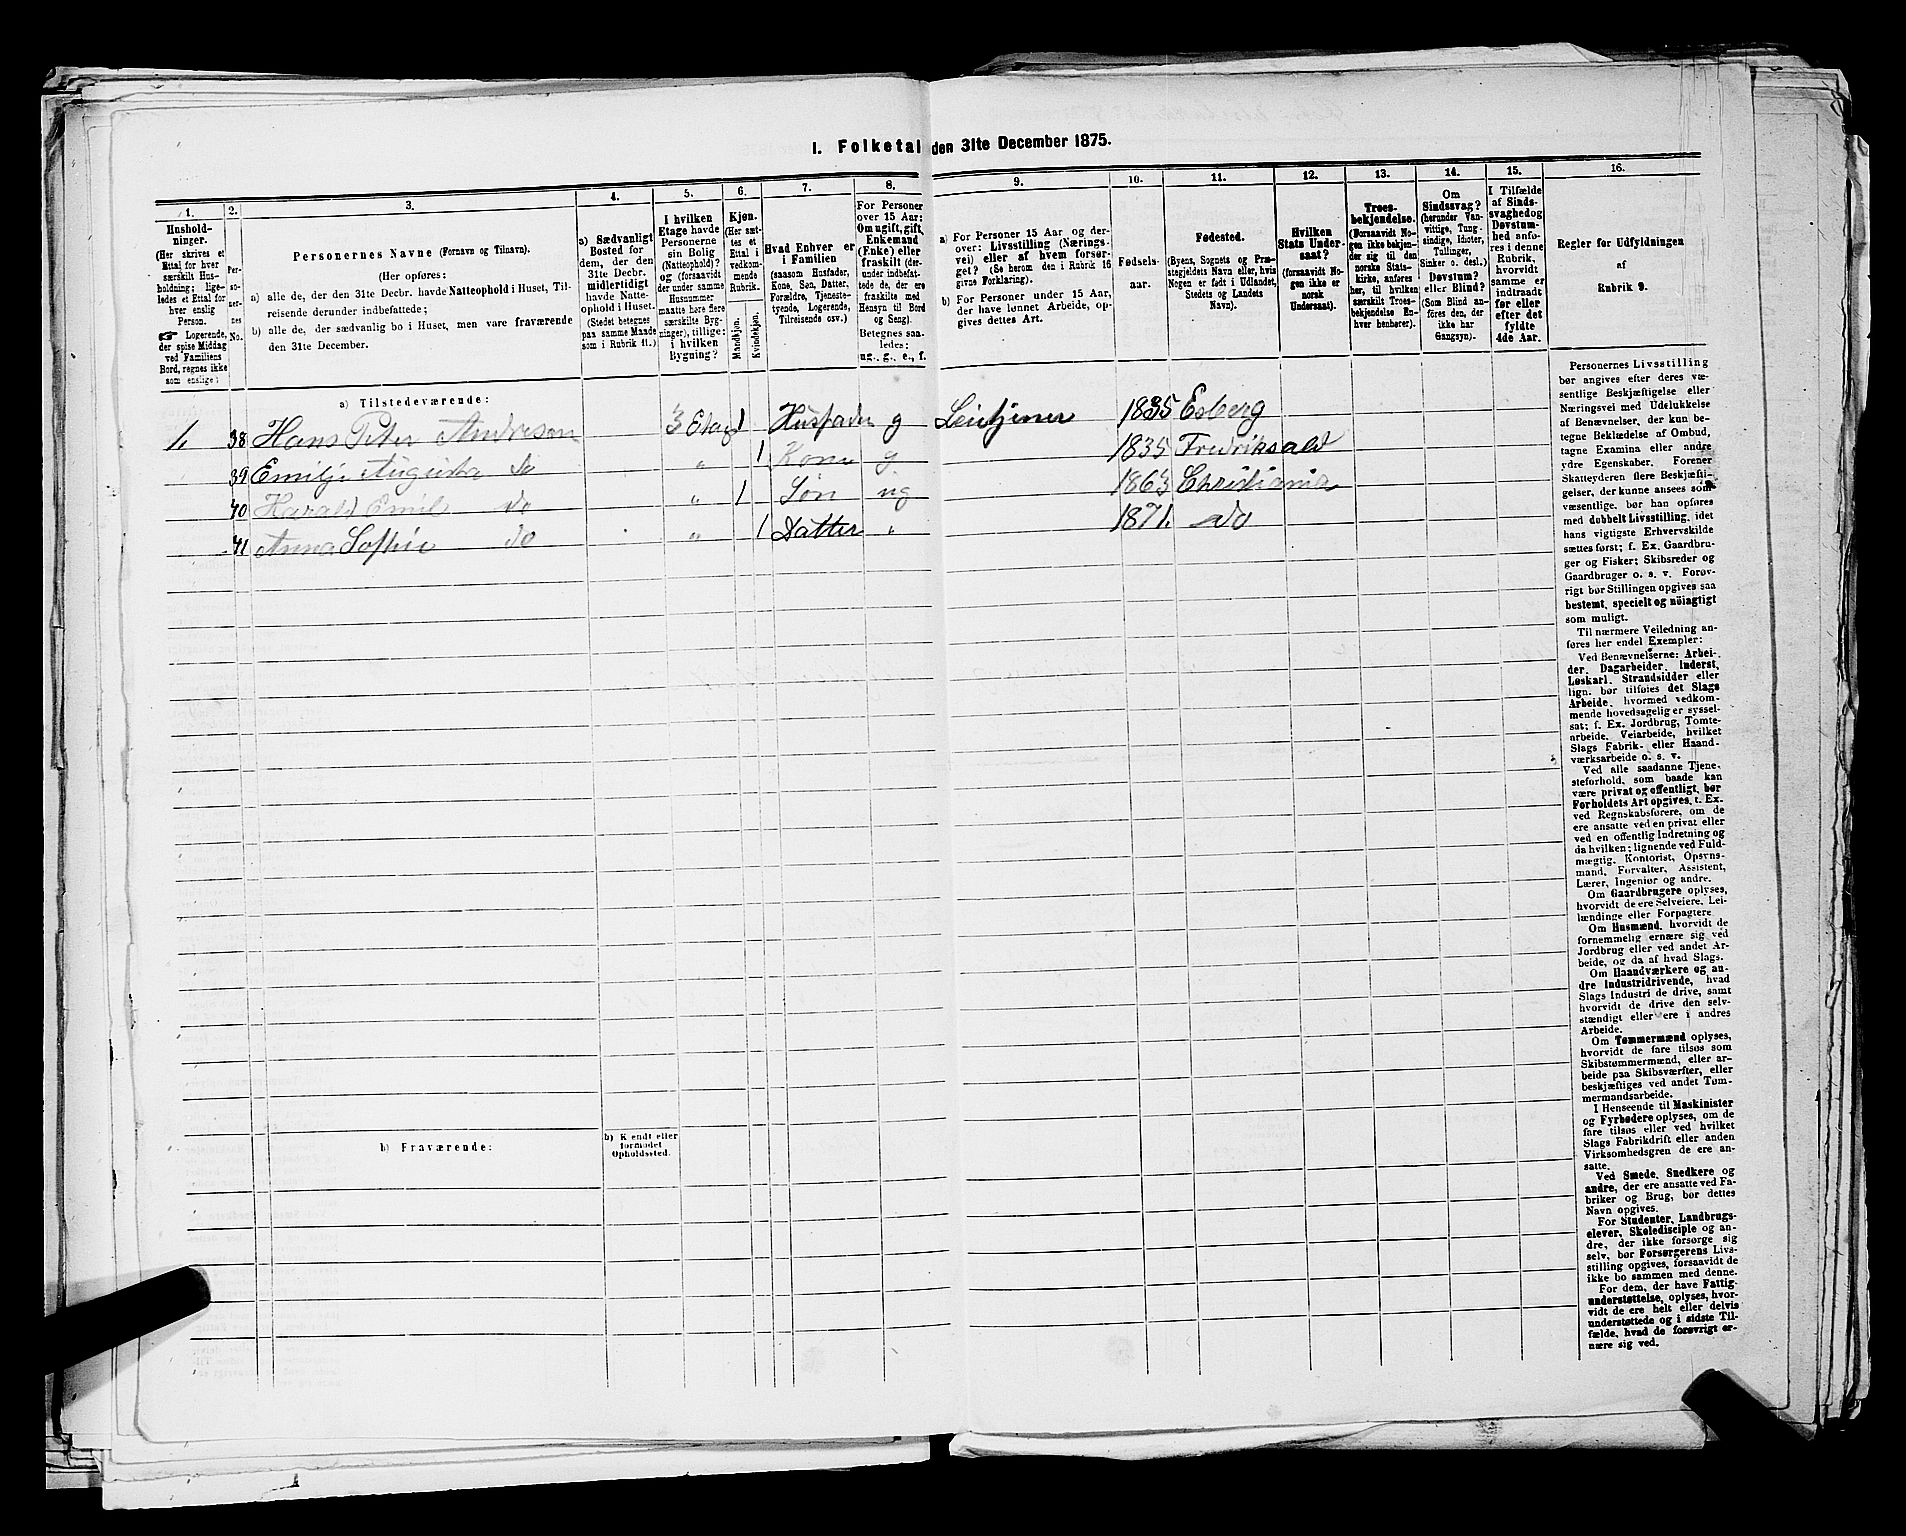 I. Folketal den 31te December 1875.
1. 2. 3. 4. 5. 6. 7. 8. 9. 10. 11. 12. 13. 14. 15. 16.
Husholdninger.
(Her skrives et Ettal for hver særskilt Husholdning; ligeledes et Ettal for hver enslig Person.
☛ Logerende, der spise Middag ved Familiens Bord, regnes ikke som enslige).
Personernes No.
Personernes Navne (Fornavn og Tilnavn).
(Her opføres:
a) alle de, der den 31te Decbr. havde Natteophold i Huset, Tilreisende derunder indbefattede;
b) alle de, der sædvanlig bo i Huset, men vare fraværende den 31te December.
a) Sædvanligt Bosted for dem, der den 31te Decbr. midlertidigt havde Natteophold i Huset. (Stedet betegnes paa samme Maade som i Rubrik 11.)
I hvilken Etage havde Personerne sin Bolig (Natteophold)? og (forsaavidt der under samme Husnummer maatte høre flere særskilte Bygninger), tillige: i hvilken Bygning?
Kjøn. (Her sættes et Ettal i vedkommende Rubrik.
Mandkjøn. Kvindekjøn.
Hvad Enhver er i Familien
(saasom Husfader, Kone, Søn, Datter, Forældre, Tjenestetyende, Logerende, Tilreisende osv.)
For Personer over 15 Aar: Om ugift, gift, Enkemand (Enke) eller fraskilt (derunder indbefattede de, der ere fraskilte med Hensyn til Bord og Seng)
Betegnes saaledes: ug., g., e., f.
a) For Personer 15 Aar og derover: Livsstilling (Næringsvei) eller af hvem forsørget? (Se herom den i Rubrik 16 givne Forklaring).
b) For Personer under 15 Aar, der have lønnet Arbeide, opgives dettes Art.
Fødselsaar.
Fødested.
(Byens, Sognets og Præstegjeldets Navn eller, hvis Nogen er født i Udlandet, Stedets og Landets Navn).
Hvilken Stats Undersaat?
(forsaavidt Nogen ikke er norsk Undersaat).
Troesbekjendelse.
(Forsaavidt Nogen ikke bekjender sig til den norske Statskirke, anføres her, til hvilken særskilt Troesbekjendelse Enhver henhører).
Om Sindssvag? (herunder Vanvittige, Tungsindige, Idioter, Tullinger, Sinker o. desl.) Døvstum? eller Blind? (Som Blind anføres den, der ikke har Gangsyn).
I Tilfælde af Sindssvaghed og Døvstumhed anføres i denne Rubrik, hvorvidt samme er indtraadt før eller efter det fyldte 4de Aar.
Regler for Udfyldningen
af
Rubrik 9.
a) Tilstedeværende:
1. 38 Hans Peter Andresen 3 Etag 1 Husfader g 1835 Esberg
39 Emilje Augusta do „ 1 Kone g 1835 Fredriksald
40 Harald Emil do „ 1 Søn ug 1863 Christiania
41 Anna Sophie do „ 1 Datter „ 1871. do
b) Fraværende:
b) Kjendt eller formodet Opholdssted.
Personernes Livsstilling
bør angives efter deres væ-
sentlige Beskjæftigelse eller
Næringsvei med Udelukkelse
af Benævnelser, der kun be-
tegne Beklædelse af Ombud,
tagne Examina eller andre
ydre Egenskaber. Forener
Skatteyderen flere Beskjæfti-
gelser, der kunne ansees som
væsentlige, bør han opføres
med dobbelt Livsstilling, idet
hans vigtigste Erhvervskilde
sættes først; f. Ex. Gaardbru-
ger og Fisker; Skibsreder og
Gaardbruger o. s. v. Forøv-
rigt bør Stillingen opgives saa
bestemt, specielt og nöiagtigt
som muligt.
Til nærmere Veiledning an-
føres her endel Exempler:
Ved Benævnelserne: Arbei-
der, Dagarbeider, Inderst,
Løskarl, Strandsidder eller
lign. bør tilføies det Slags
Arbeide, hvormed vedkom-
mende hovedsagelig er syssel-
sat; f. Ex. Jordbrug, Tomte-
arbeide, Veiarbeide, hvilket
Slags Fabrik- eller Haand-
værksarbeide o. s. v.
Ved alle saadanne Tjene-
steforhold, som baade kan
være privat og offentligt, bør
Forholdets Art opgives, t. Ex.
ved Regnskabsførere, om de
ere ansatte ved en privat eller
ved en offentlig Indretning og
da hvilken; lignende ved Fuld-
mægtig, Kontorist, Opsyns-
mand, Forvalter, Assistent,
Lærer, Ingeniør og andre.
Om Gaardbrugere oplyses,
hvorvidt de ere Selveiere, Lei-
lændinge eller Forpagtere
Om Husmænd, hvorvidt de
fornemmelig ernære sig ved
Jordbrug eller ved andet Ar-
beide, og da af hvad Slags.
Om Haandværkere og an-
dre Industridrivende, hvad
Slags Industri de drive, samt
hvorvidt de drive den selv-
stændigt eller ere i andres
Arbeide.
Om Tømmermænd oplyses,
hvorvidt de fare tilsøs som
Skibstømmermænd, eller ar-
beide paa Skibsværfter, eller
beskjæftiges ved andet Tøm-
mermandsarbeide.
I Henseende til Maskinister
og Fyrbødere oplyses, om de
fare tilsøs eller ved hvilket
Slags Fabrikdrift eller anden
Virksomhedsgren de ere an-
satte.
Ved Smede, Snedkere og
andre, der ere ansatte ved Fa-
briker og Brug, bør dettes
Navn opgives.
For Studenter, Landbrugs-
elever, Skoledisciple og an-
dre, der ikke forsørge sig
selv, bør Forsørgerens Livs-
stilling opgives, forsaavidt de
ikke bo sammen med denne.
For dem, der have Fattig-
understøttelse, oplyses, hvor-
vidt de ere helt eller delvis
understøttede og i sidste Til-
fælde, hvad de forøvrigt er-
nære sig ved.